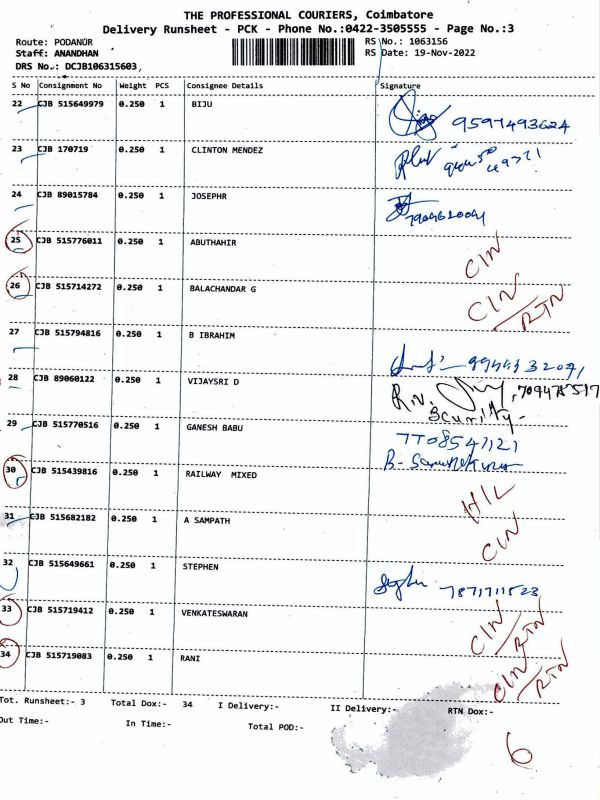 THE PROFESSIONAL COURIERS, Coimbatore
Delivery Runsheet - PCK - Phone No.:0422-3505555 - Page No.:3
Route: PODANUR RS No.: 1063156
Staff: ANANDHAN RS Date: 19-Nov-2022
DRS No.: DCJB106315603,
S No Consignment No Weight PCS Consignee Details Signature
22 CJB 515649979 0.250 1 BIJU 9597493624
23 CJB 170719 0.250 1 CLINTON MENDEZ
24 CJB 89015784 0.250 1 JOSEPHR
25 CJB 515776011 0.250 1 ABUTHAHIR CIN
26 CJB 515714272 0.250 1 BALACHANDAR G CIN/RTN
27 CJB 515794816 0.250 1 B IBRAHIM
28 CJB 89060122 0.250 1 VIJAYSRI D R.V.
29 CJB 515770516 1 GANESH BABU 7708541121
30 CJB 515439816 0.250 1 RAILWAY MIXED H/L
31 CJB 515682182 0.250 1 A SAMPATH CIN
32 CJB 515649661 0.250 1 STEPHEN 7871711523
33 CJB 515719412 0.250 1 VENKATESWARAN CIN/RTN
34 CJB 515719083 0.250 1 RANI CIN/RTN
Tot. Runsheet:- 3 Total Dox:- 34 I Delivery:- II Delivery:- RTN Dox:-
Out Time:- In Time:- Total POD:- 6